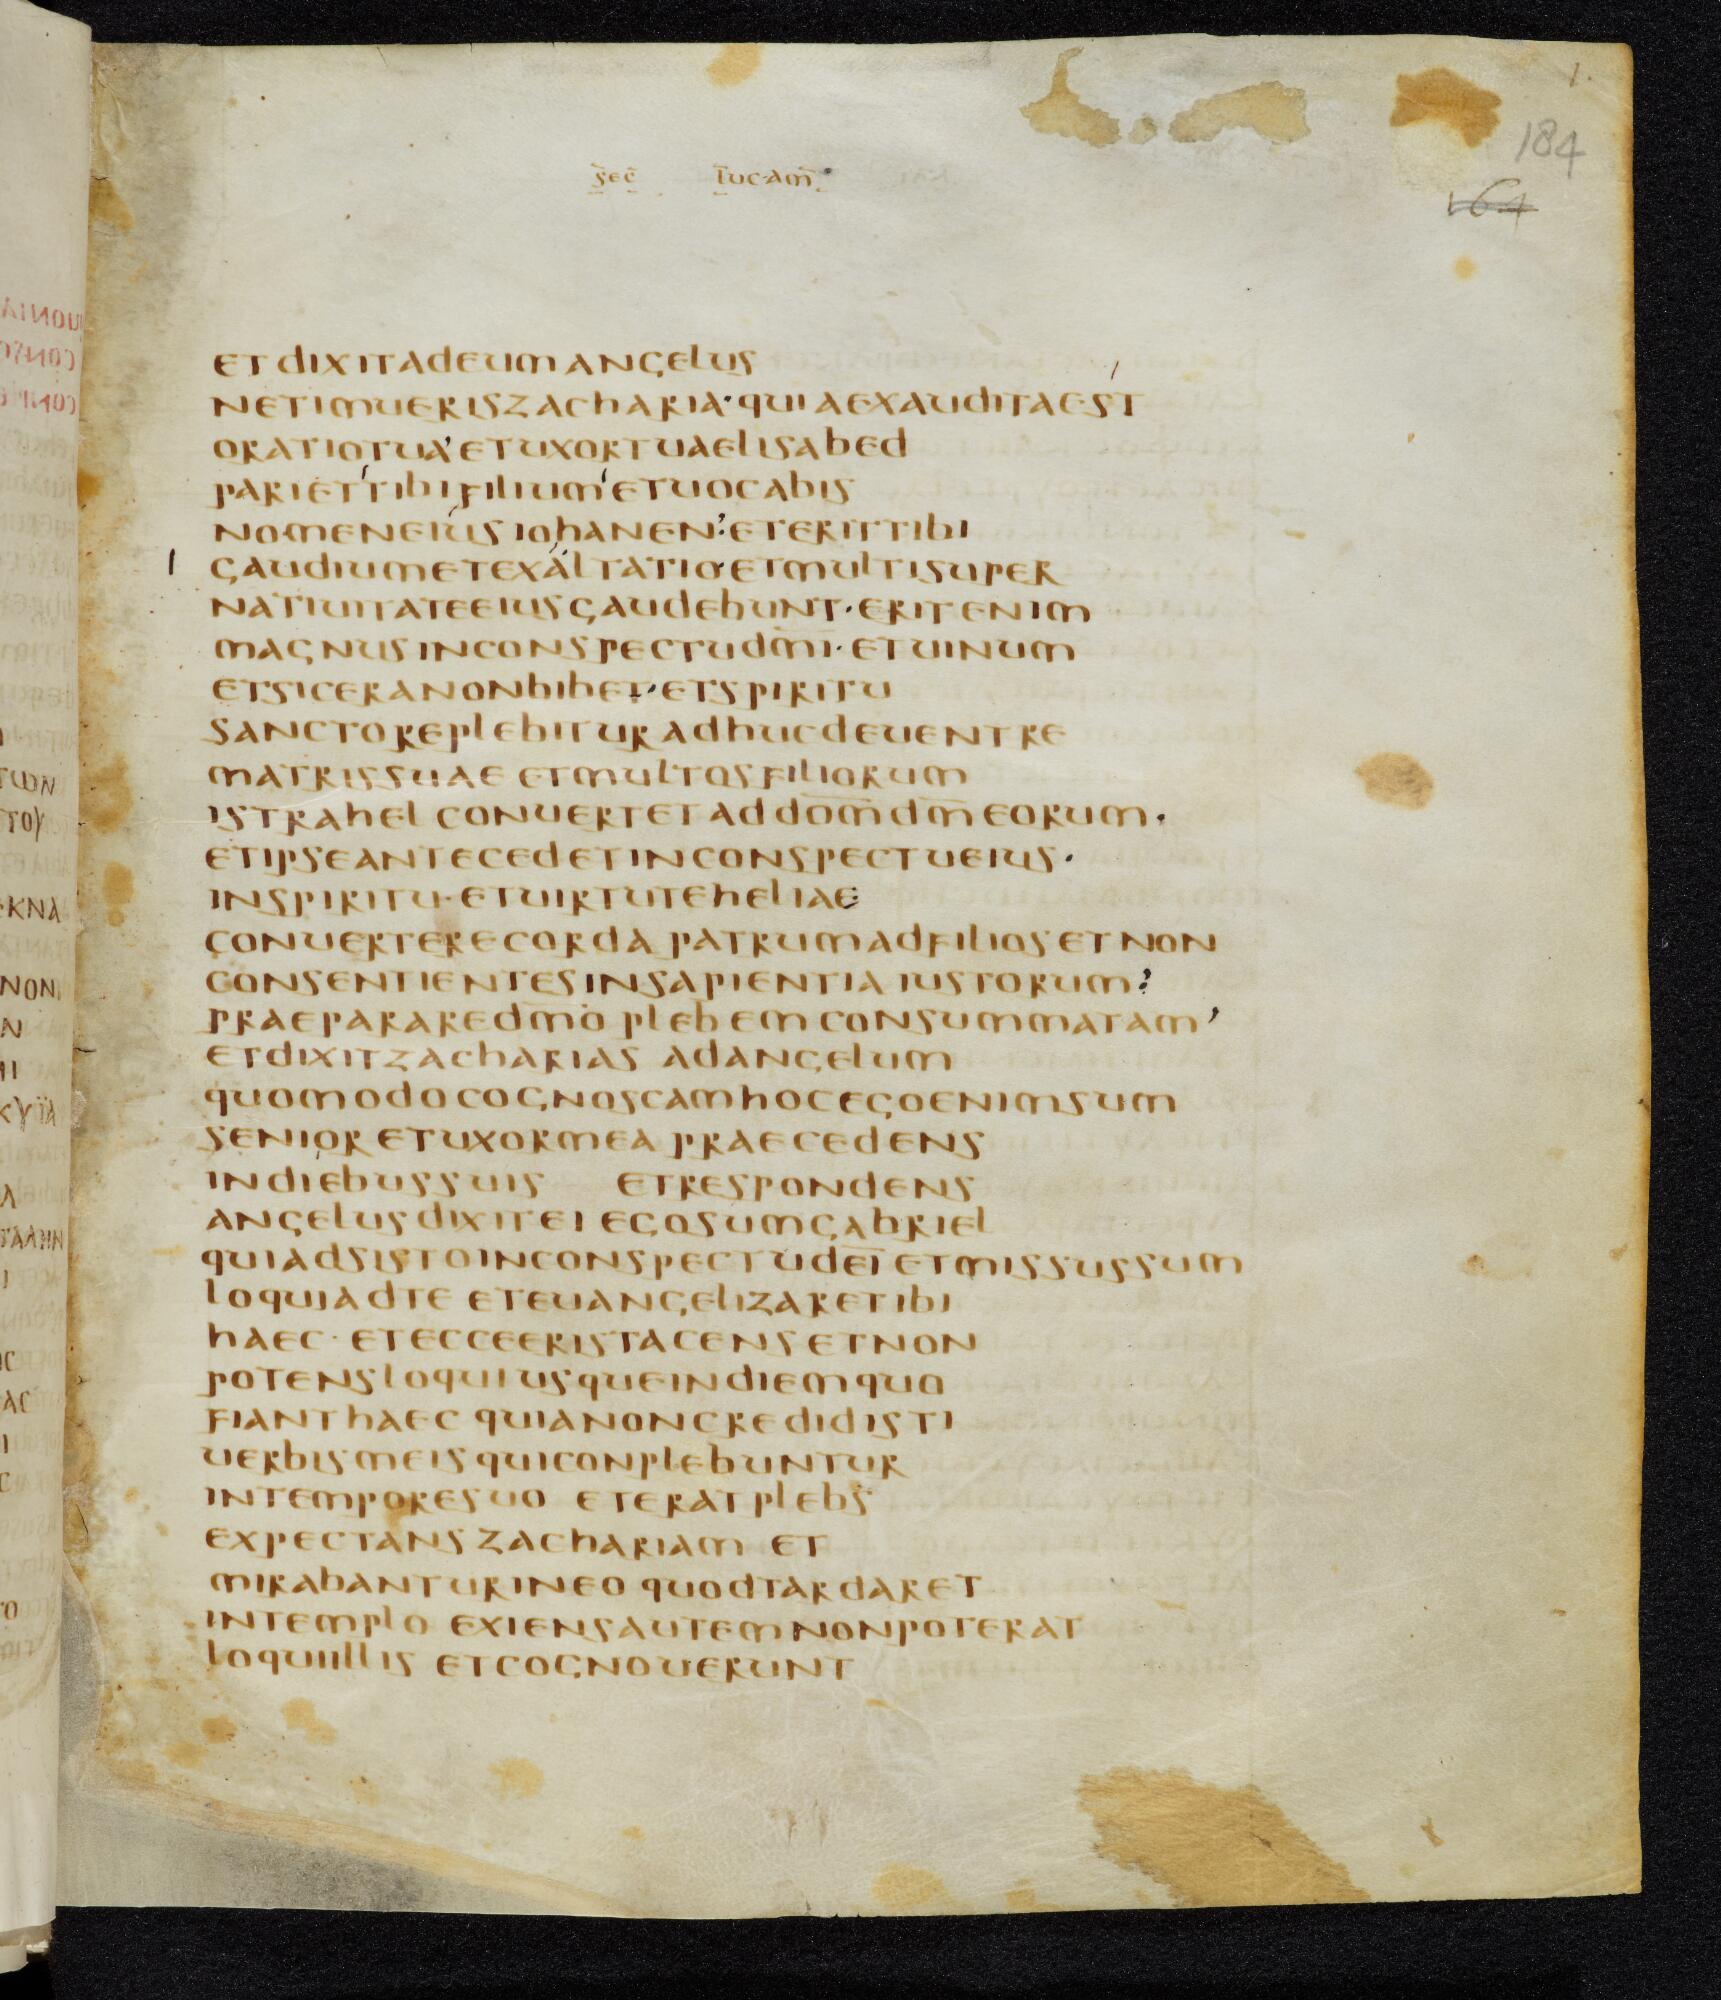 1.
184
164
sec lucam
et dixit ad eum angelus
ne timueris zacharia· quia exaudita est
oratio tua' et uxor tua elisabed
pariet tibi filium' et uocabis
nomen eius iohanen:' et erit tibi
gaudium et exaltatio· et multi super
natiuitate eius gaudebunt· erit enim
magnus in conspectu dm̅i̅· et uinum
et sicera non bibet· et spiritu
sancto replebitur adhuc de uentre
matris suae et multos filiorum
istrahel conuertet ad do̅m̅ d̅m̅ eorum·
et ipse antecedet in conspectu eius·
in spiritu· et uirtute heliae
conuertere corda patrum ad filios et non
consentientes in sapientia iustorum:'
praeparare dm̅o̅ plebem consummatam'
et dixit zacharias ad angelum
quomodo cognoscam hoc ego enim sum
senior et uxor mea praecedens
in diebus suis et respondens
angelus dixit ei ego sum gabriel
qui adsisto in conspectu de̅i̅ et missus sum
loqui ad te et euangelizare tibi
haec· et ecce eris tacens et non
potens loqui usque in diem quo
fiant haec quia non credidisti
uerbis meis qui conplebuntur
in tempore suo et erat plebs
expectans zachariam et
mirabantur in eo quod tardaret
in templo exiens autem non poterat
loqui illis et cognouerunt